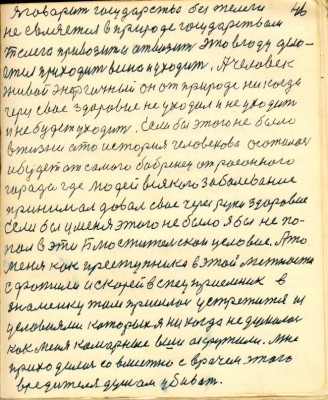 46
Я говорит государство без телеги
не является в природе государством
Телега привозит и отвозит. Это в году
приходит весна и уходит. А человек
живой энергичный он от природе никогда
через свое здоровие не уходил и не уходит
и не будет уходит. Если бы этого не было
в жизни а то история человекова осталася
и будет от самого бобренец от районного
города где людей всякого заболевание
принимал довал свае через руки здоровие
Если бы у меня этого не было я бы не по-
пал в эти условие. А то
меня как преступника в этой местности
и скорей в спец приемник в
знаменку там пришлось устретится из
условиями которых я никогда не думалося
как меня камарные вши окружили. Мне
приходилося совместно с врачем этого
вредителя душит убиват.